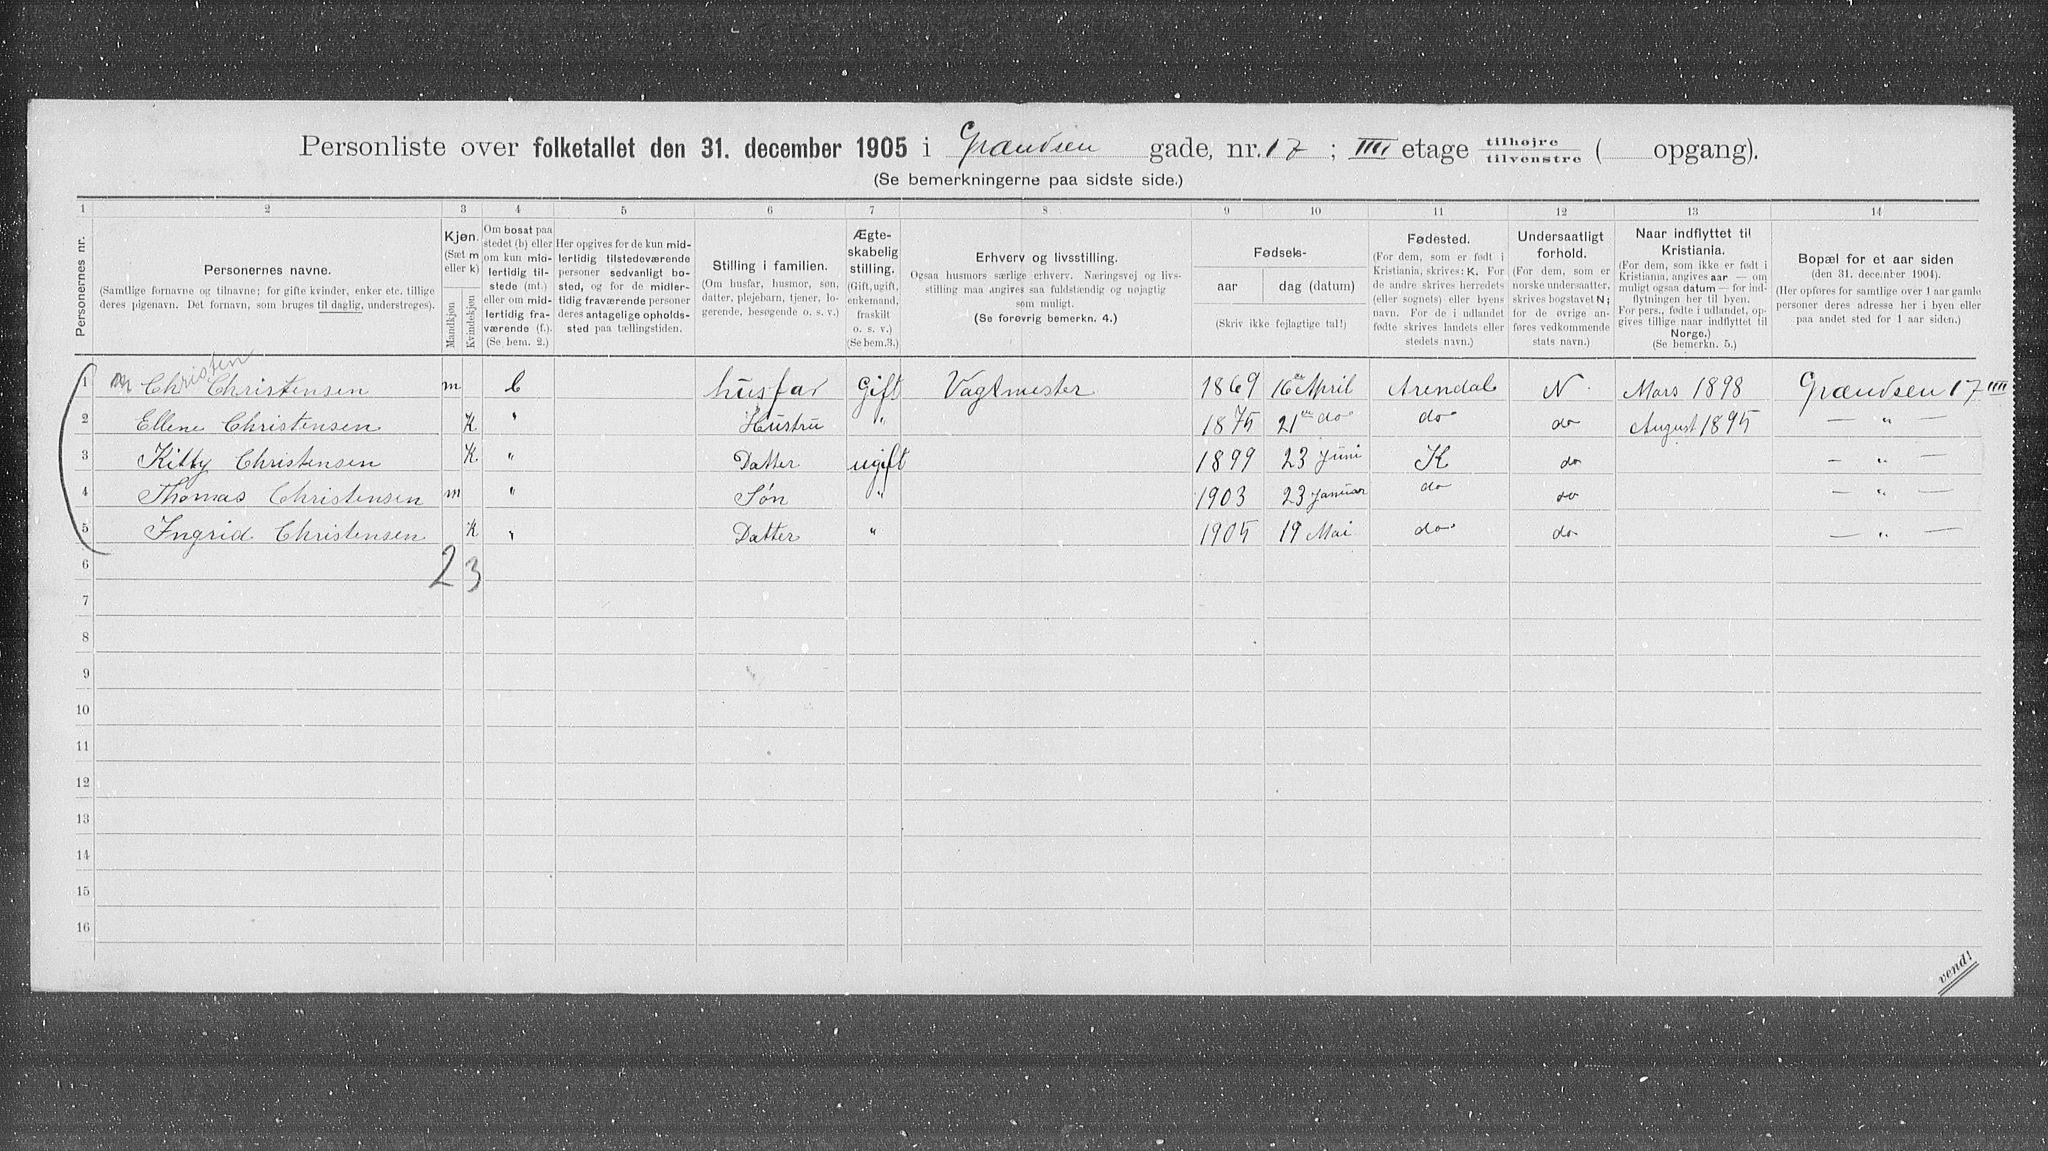 Personliste over folketallet den 31. december 1905 i Grændsen gade, nr. 17; IIII etage tilhøjre tilvenstre ( opgang).
(Se bemerkningerne paa sidste side.)
1 2 3 4 5 6 7 8 9 10 11 12 13 14
Personernes nr.
Personernes navne.
(Samtlige fornavne og tilnavne; for gifte kvinder, enker etc. tillige deres pigenavn. Det fornavn, som bruges til daglig, understreges).
Kjøn.
(Sæt m eller k)
Mandkjøn Kvindekjøn
Om bosat paa stedet (b) eller om kun midlertidig tilstede (mt.) eller om midlertidig fraværende (f.). (Se bem. 2.)
Her opgives for de kun midlertidig tilstedeværende personer sedvanligt bosted, og for de midlertidig fraværende personer deres antagelige opholdssted paa tællingstiden.
Stilling i familien.
(Om husfar, husmor, søn, datter, plejebarn, tjener, logerende, besøgende o. s. v.)
Ægteskabelig stilling.
(Gift, ugift, enkemand, fraskilt o. s. v.)
(Se bem.3.)
Erhverv og livsstilling.
Ogsaa husmors særlige erhverv. Næringsvej og livsstilling maa angives saa fuldstændig og nøjagtig som muligt.
(Se forøvrig bemerkn. 4.)
Fødsels-
aar dag (datum)
(Skriv ikke fejlagtige tal!)
Fødested.
(For dem, som er født i Kristiania, skrives: K. For de andre skrives herredets (eller sognets) eller byens navn. For de i udlandet fødte skrives landets eller stedets navn.)
Undersaatligt forhold.
(For dem, som er norske undersaatter, skrives bogstavet N; for de øvrige anføres vedkommende stats navn.)
Naar indflyttet til Kristiania.
(For dem, som ikke er født i Kristiania, angives aar — om muligt ogsaa datum — for indflytningen her til byen. For pers., fødte i udlandet, opgives tillige naar indflyttet til Norge.)
(Se bemerkn. 5.)
Bopæl for et aar siden
(den 31. december 1904).
(Her opføres for samtlige over 1 aar gamle personer deres adresse her i byen eller paa andet sted for 1 aar siden.)
1 m Christen Christensen m b husfar Gift Vagtmester 1869 16de April Arendal N. Mars 1898 Grændsen 17 IIII
2 Ellene Christensen K " Hustru " 1875 21de do do do August 1895 — " —
3 Kitty Christensen K " Datter ugift 1899 23 Juni K do — " —
4 Thomas Christensen m " Søn " 1903 23 Januar do do — " —
5 Ingrid Christensen K " Datter " 1905 19 Mai do do — " —
6 2 3
7
8
9
10
11
12
13
14
15
16
vend!